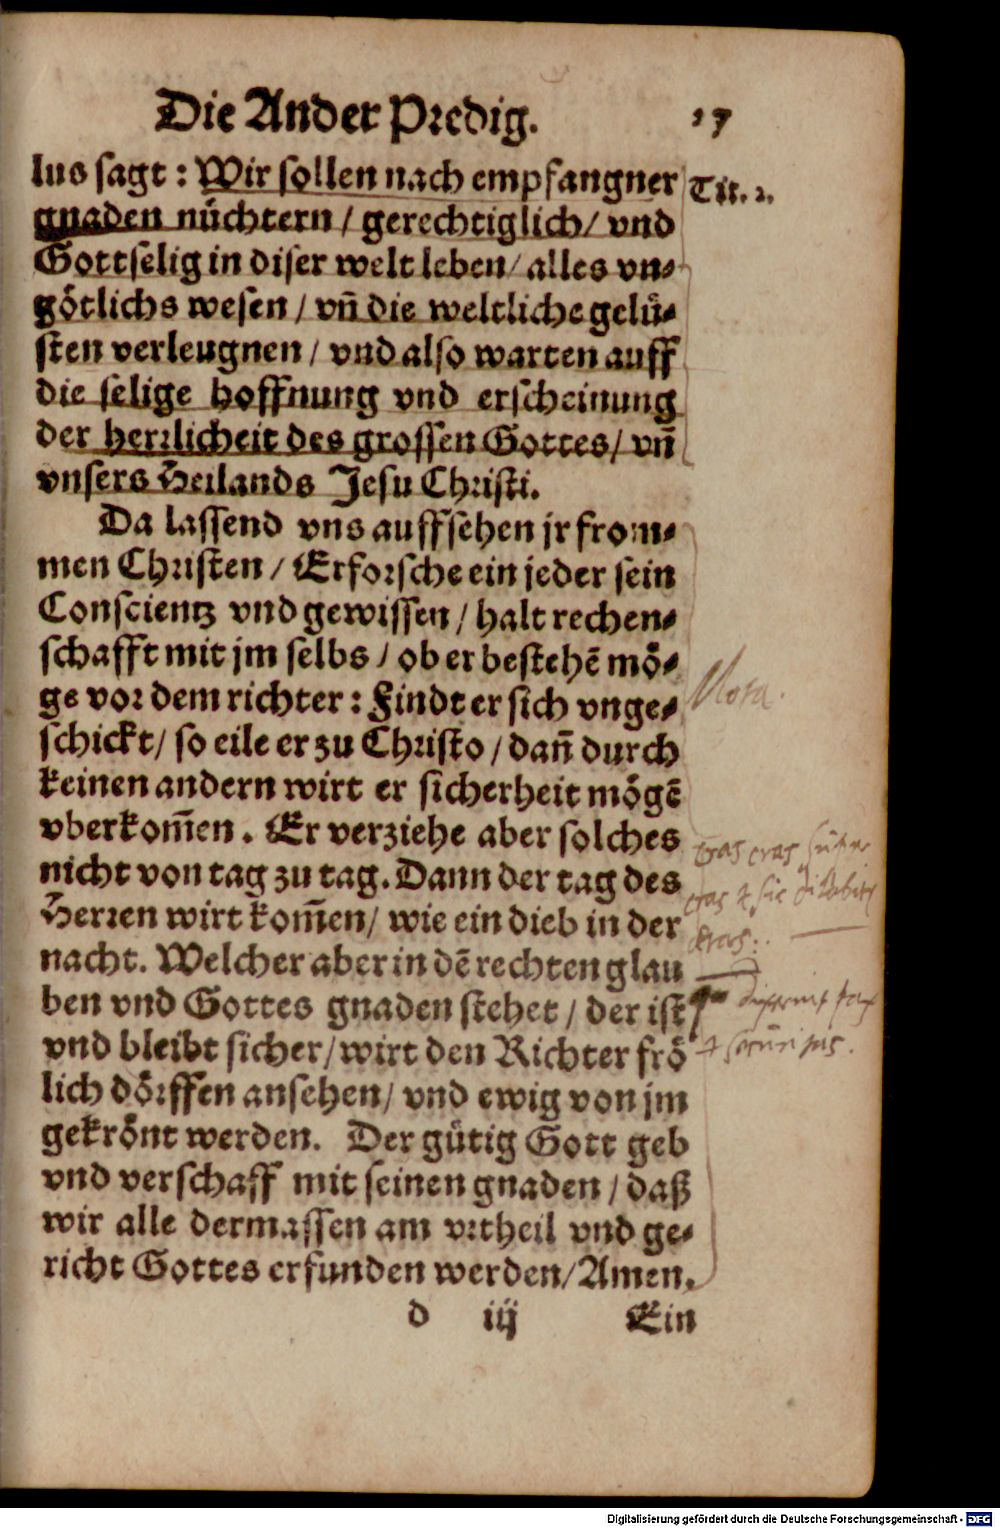 Die Ander Predig. 17
lus sagt: Wir sollen nach empfangner Tit. 2.
gnaden nüchtern / gerechtiglich / vnd
Gottselig in diser welt leben / alles vn⸗
götlichs wesen / vñ die weltliche gelü⸗
sten verleugnen / vnd also warten auff
die selige hoffnung vnd erscheinung
der herrlicheit des grossen Gottes / vñ
vnsers Heilands Jesu Christi.
Da lassend vns auffsehen jr from⸗
men Christen / Erforsche ein jeder sein
Conscientz vnd gewissen / halt rechen⸗
schafft mit jm selbs / ob er bestehē mö⸗
ge vor dem richter: Findt er sich vnge⸗
Nota.
schickt / so eile er zu Christo / dañ durch
keinen andern wirt er sicherheit mögē
vberkom̄en. Er verziehe aber solches
nicht von tag zu tag. Dann der tag des
cras cras
Herren wirt kom̄en / wie ein dieb in der
cras
nacht. Welcher aber in dē rechten glau
ben vnd Gottes gnaden stehet / der ist
vnd bleibt sicher / wirt den Richter frö
lich dörffen ansehen / vnd ewig von jm
gekrönt werden. Der gütig Gott geb
vnd verschaff mit seinen gnaden / daß
wir alle dermassen am vrtheil vnd ge⸗
richt Gottes erfunden werden / Amen.
d iij Ein
Digitalisierung gefördert durch die Deutsche Forschungsgemeinschaft - DFG